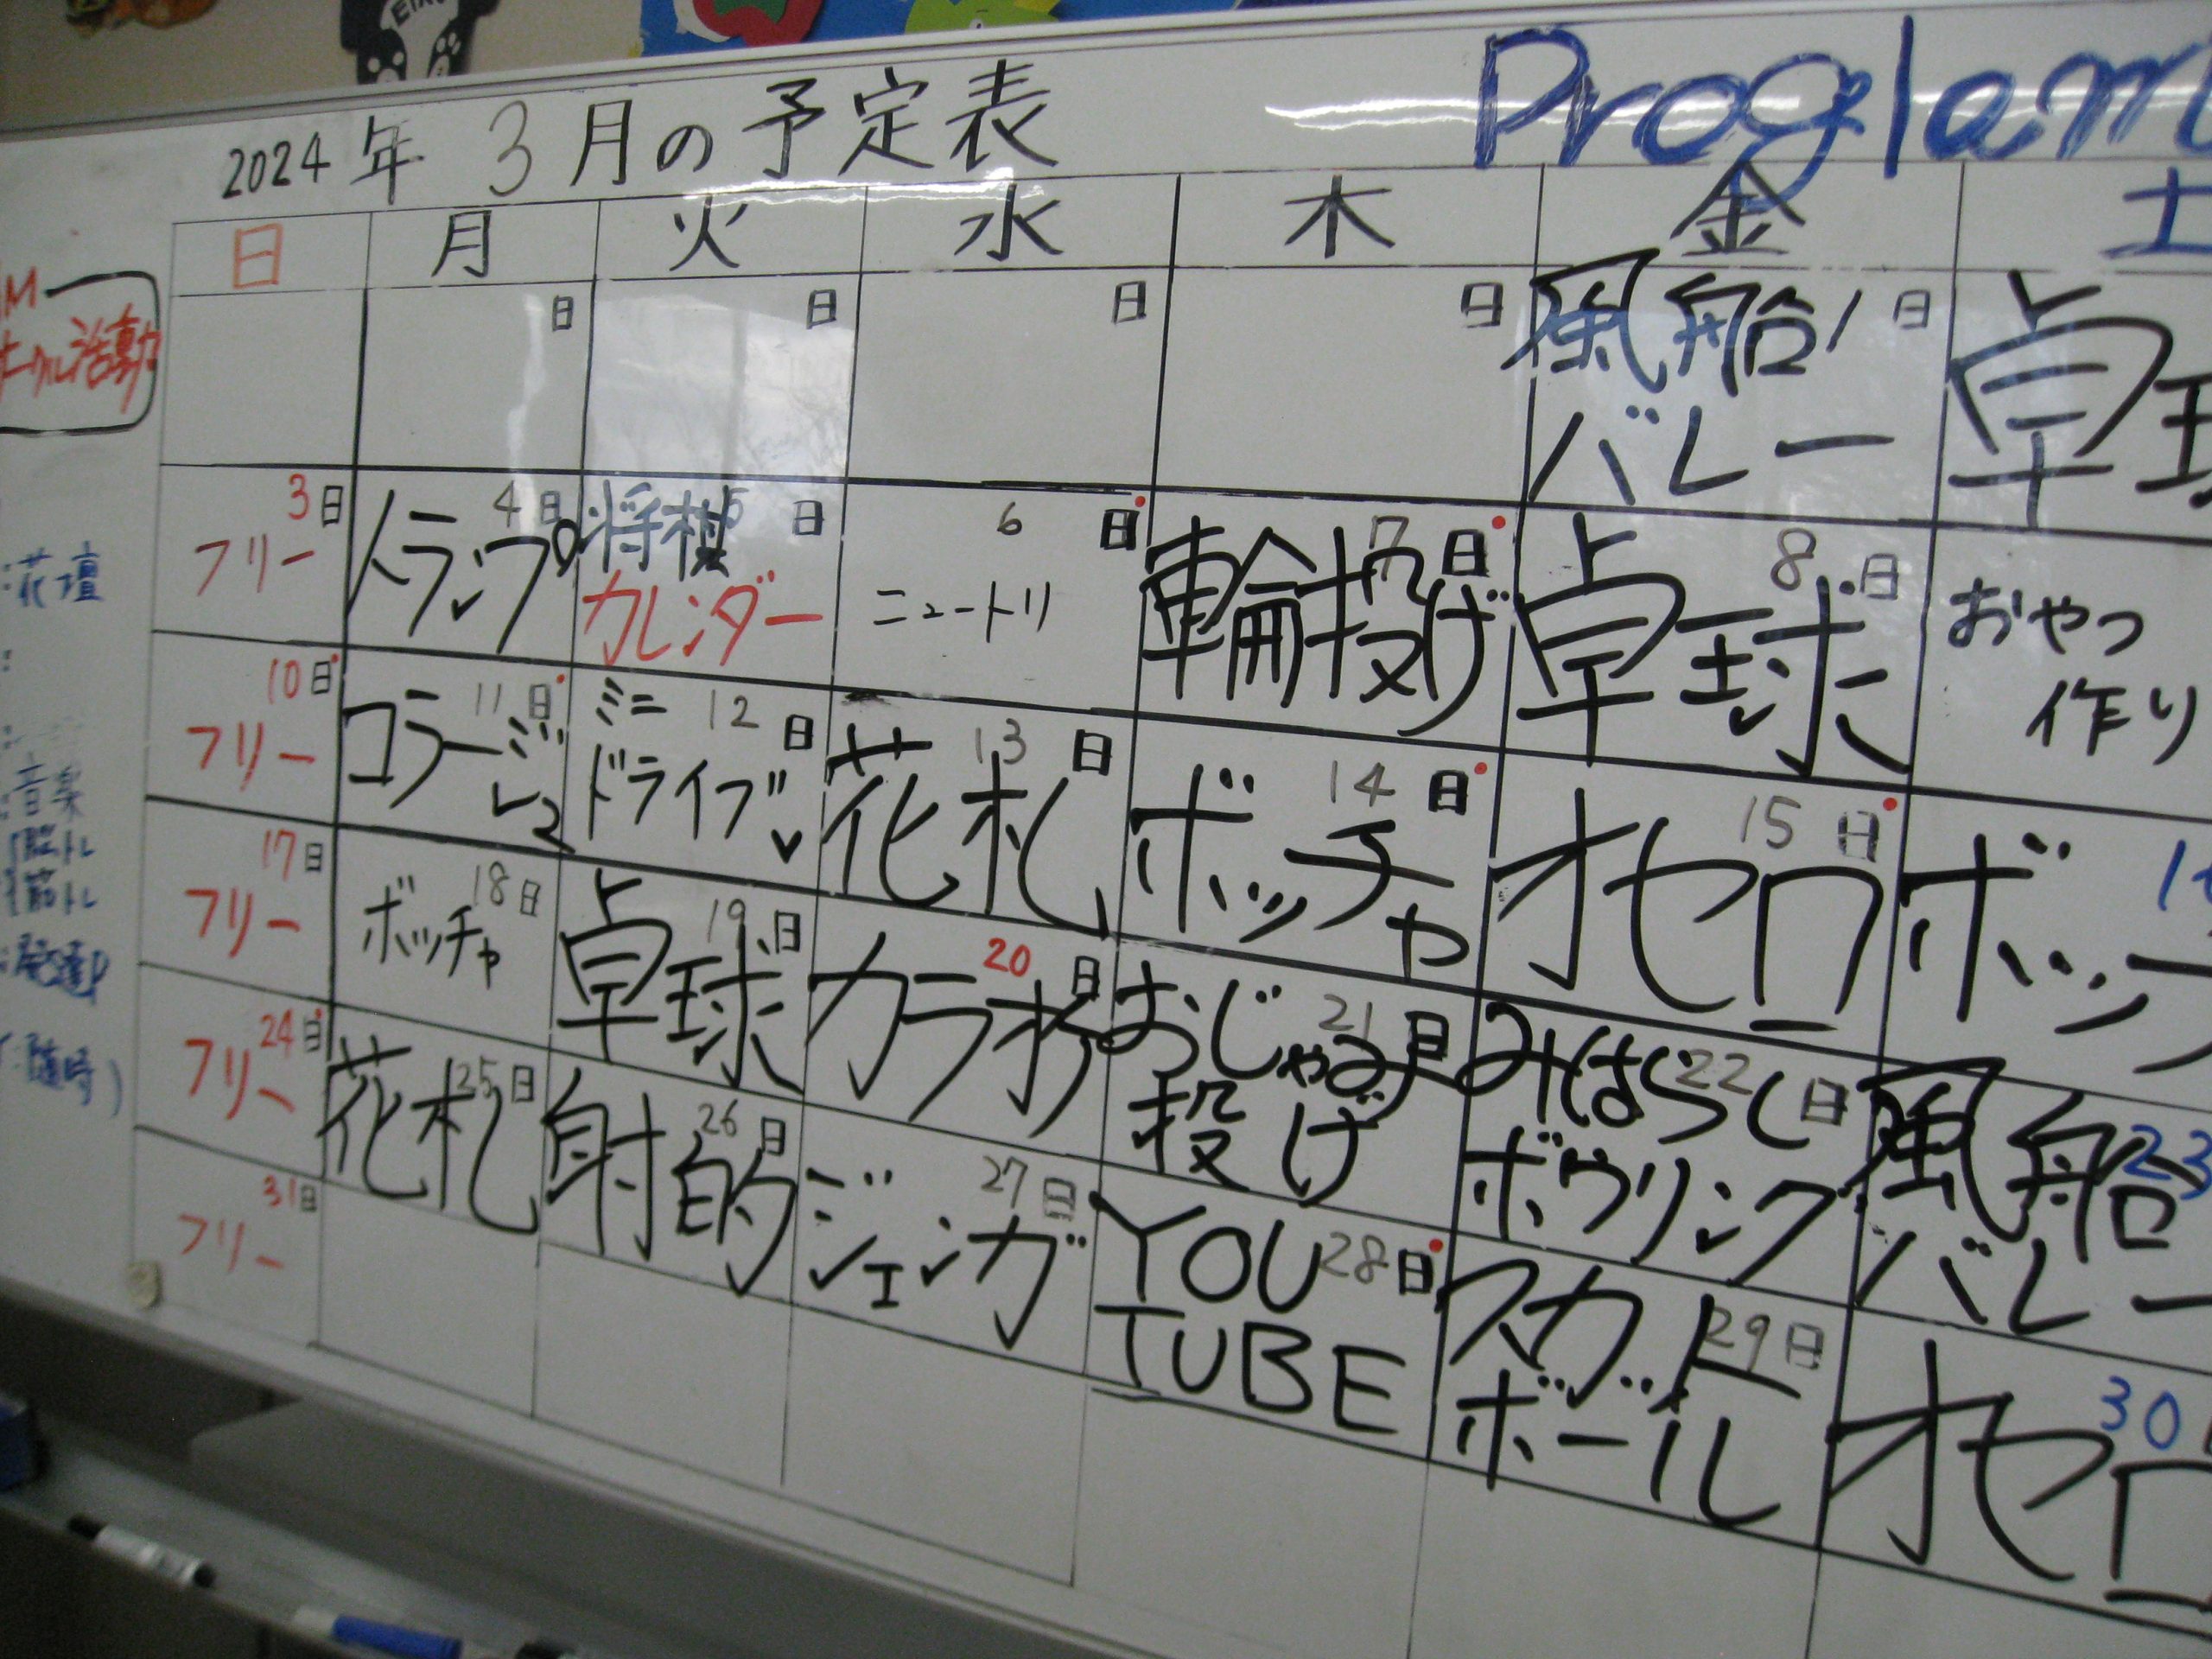 2024年 3月の予定表
Proglam
日 月 火 水 木 金 土
日 日 日 日 1日
風船
バレー
3日 フリー
4日 トランプ
5日 将棋
カレンダー
6日
ニュートリ
7日 輪投げ
8日 卓球
おやつ
作り
10日 フリー
11日 コラージュ
12日 ミニ
ドライブ
13日 花札
14日 ボッチャ
15日 オセロ
17日 フリー
18日 ボッチャ
19日 卓球
20日 カラオケ
21日 おじゃみ
投げ
22日 みはらし
ボウリング
23
風船
バレー
24日 フリー
25日 花札
26日 射的
27日 ジェンガ
28日 YOU
TUBE
29日 スカット
ボール
30
オセロ
31日 フリー
活動
:花壇
:音楽
随時)